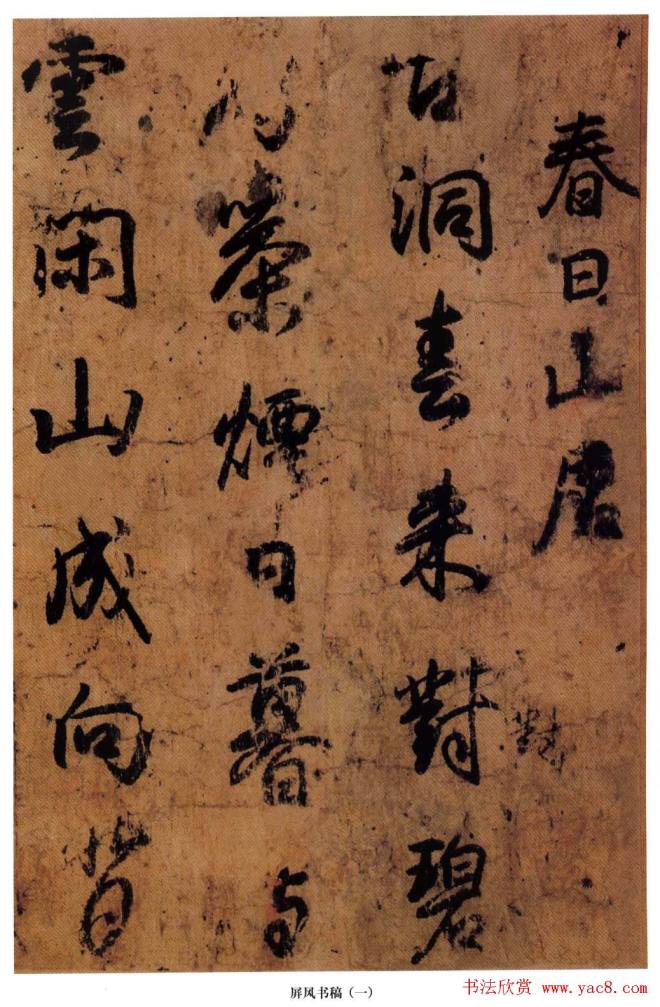 春日山居
古洞春来對碧
對
灣茶煙日暮与
雲閑山成向背
屏风书稿(一)
书法欣赏 www.yac8.com